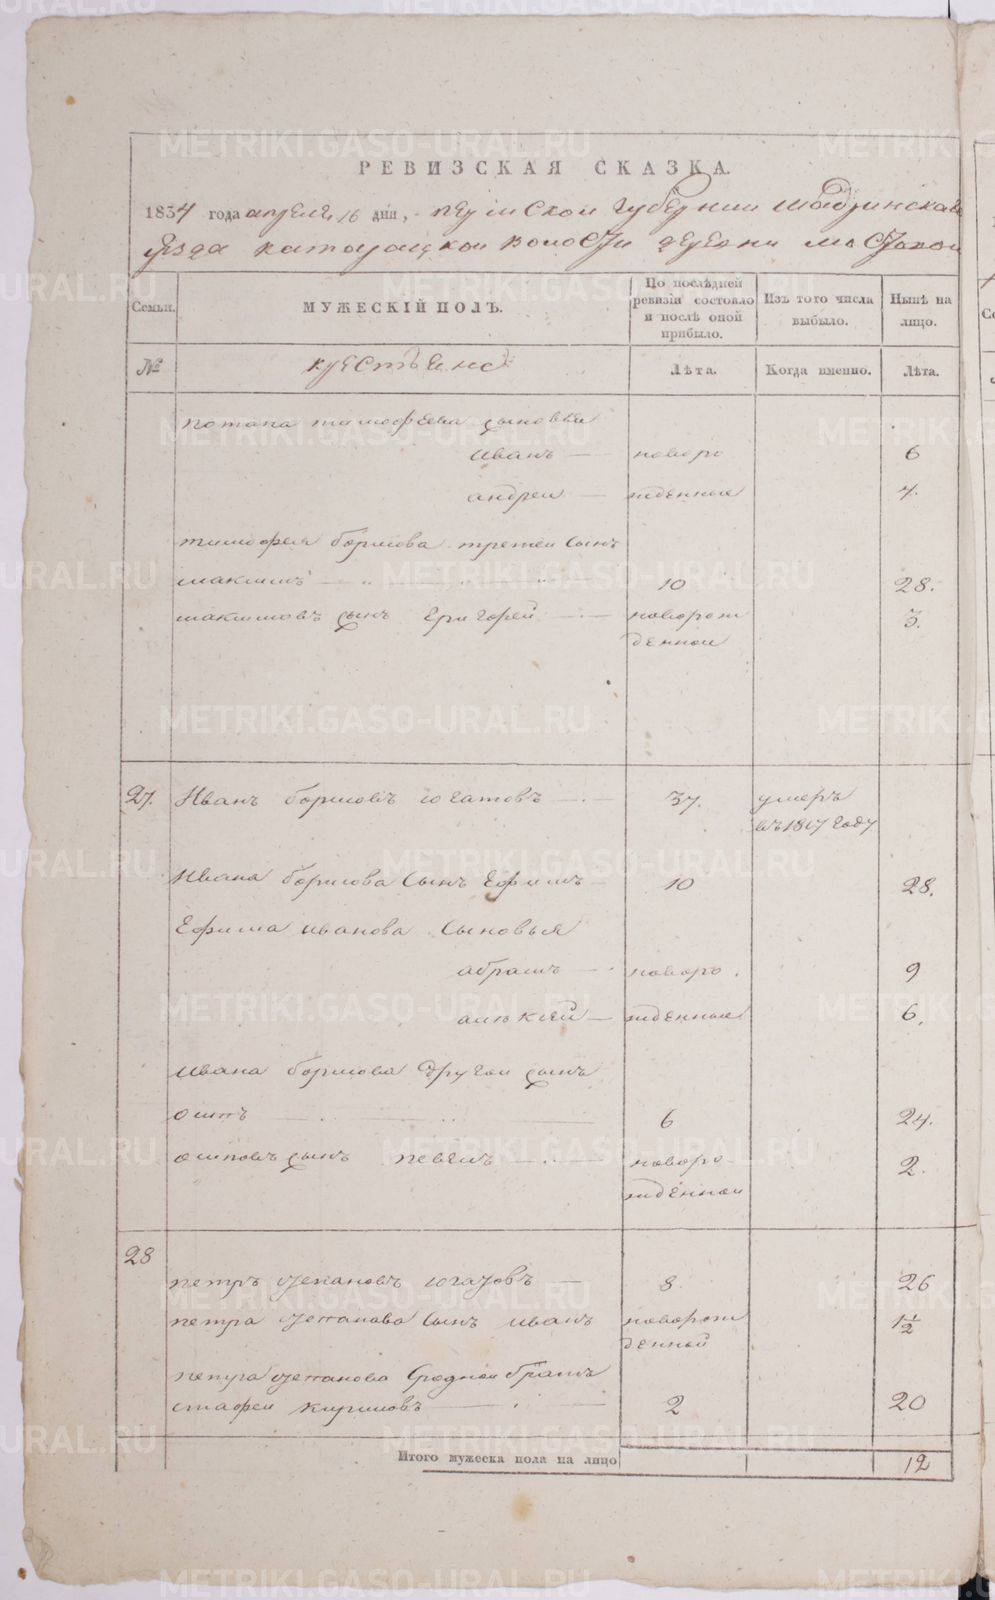 РЕВИЗСКАЯ СКАЗКА.
1834 года апреля 16 дня, пермской губернии шадринскаго
уезда катайской волости деревни
Семьи. МУЖЕСКІЙ ПОЛЪ. По послѣдней ревизіи состояло и послѣ оной прибыло. Изъ того числа выбыло. Нынѣ на лицо.
№ крестьянс Лѣта. Когда именно. Лѣта.
потапа тимофеева сыновья
иванъ новоро 6
андреи жденные 4.
тимофея борисова третеи сынъ
максимъ 10 28.
максимовъ сынъ григорей новорож 3.
денной
27. Иванъ борисовъ югатовъ 37. умеръ
въ 1817 году
Ивана борисова сынъ Ефимъ 10 28.
Ефима иванова сыновья
абрамъ новоро 9
алѣксѣй жденные 6.
ивана борисова другои сынъ
осипъ 6 24.
осиповъ сынъ новоро 2.
жденнои
28
петръ степановъ югатовъ 8. 26
петра степанова сынъ иванъ новорож 1½
денной
петра степанова среднеи братъ
2 20
Итого мужеска пола на лицо 12
METRIKI.GASO-URAL.RU